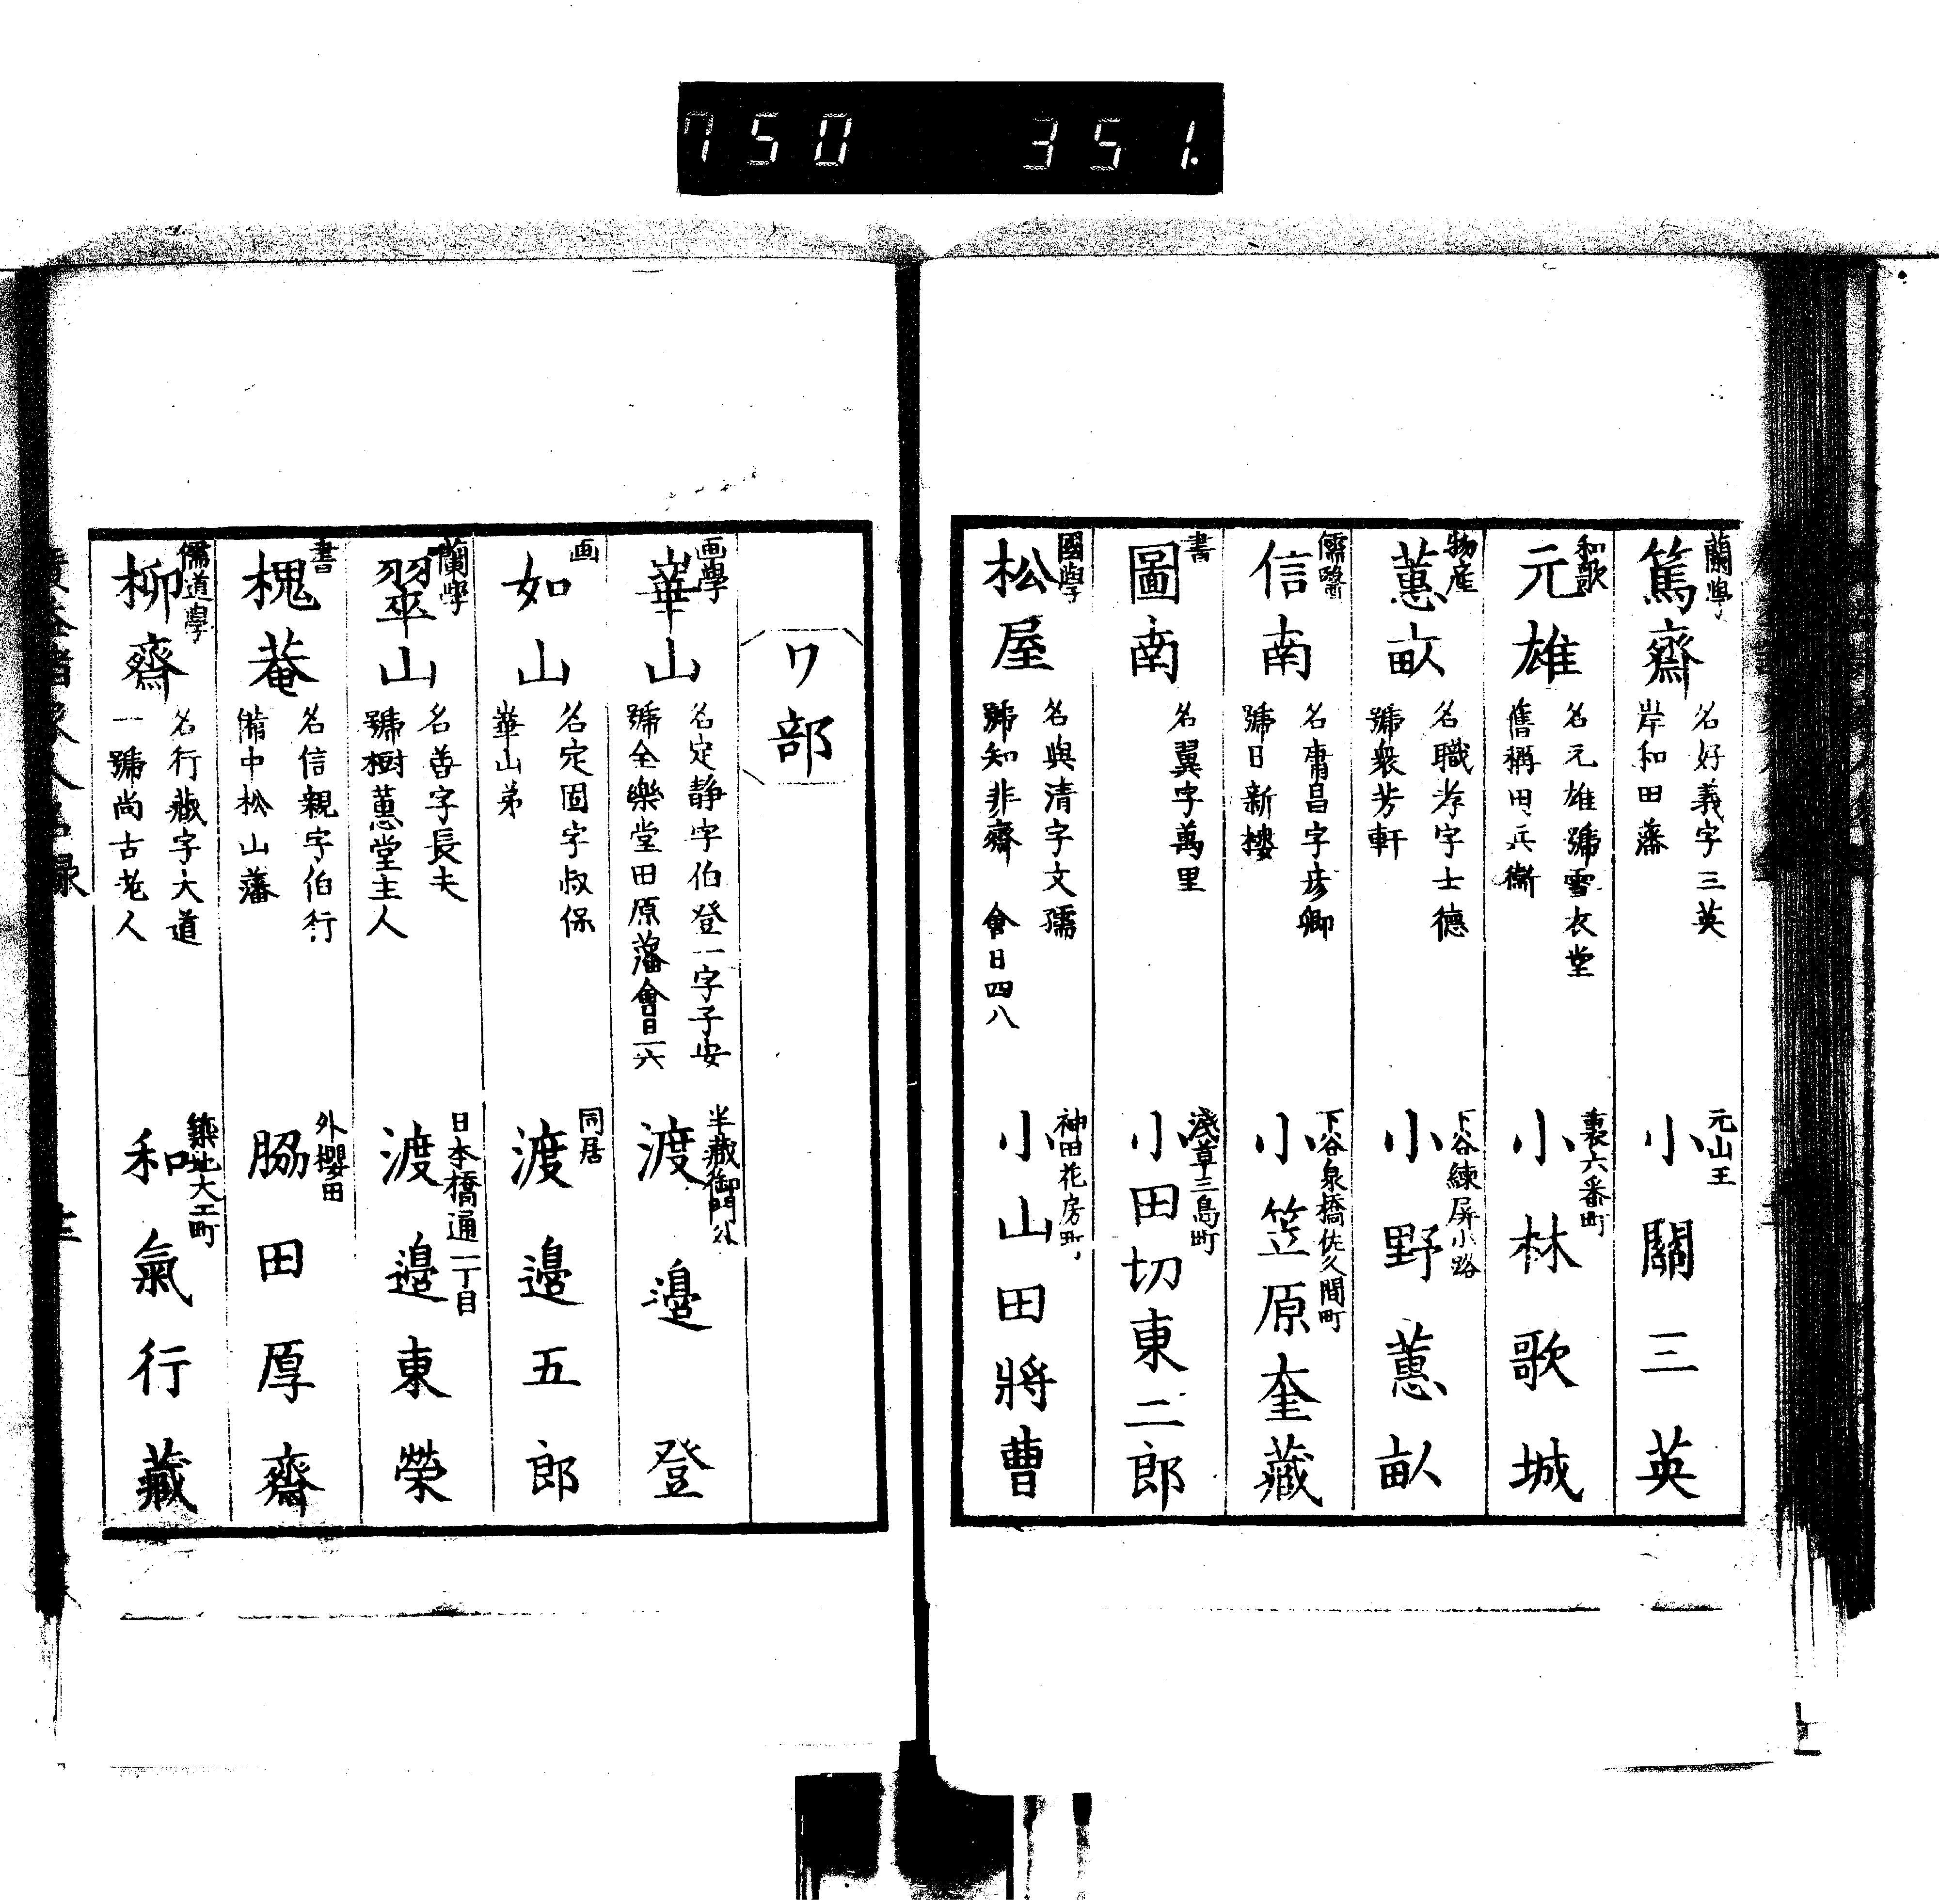 750 351.
蘭學
篤齋
名好義字三英
岸和田藩
元山王
小關三英
和歌
元雄
名元雄號雪衣堂
舊稱田兵衞
裏六番町
小林歌城
物産
蕙畝
名職孝字士德
號衆芳軒
下谷練屏小路
小野蕙畝
儒醫
信南
名庸昌字彦卿
號日新樓
下谷泉橋佐久間町
小笠原奎藏
書
圖南
名翼字萬里
淺草三島町
小田切東二郎
國學
松屋
名與清字文孺
號知非齋 會日四八
神田花房町
小山田將曹
ワ部
画學
崋山
名定静字伯登一字子安
號全樂堂田原藩會日二六
半藏御門外
渡邉登
画
如山
名定固字叔保
崋山弟
同居
渡邉五郎
蘭學
翠山
名善字長夫
號樹蕙堂主人
日本橋通二丁目
渡邉東榮
書
槐菴
名信親字伯行
備中松山藩
外櫻田
脇田厚齋
儒道學
柳齋
名行藏字大道
一號尚古老人
築地大工町
和氣行藏